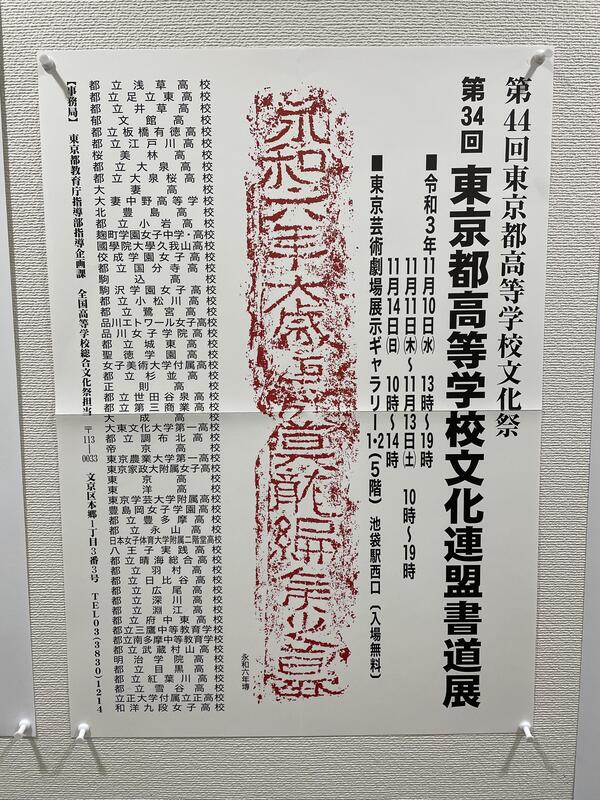 第44回東京都高等学校文化祭
第34回 東京都高等学校文化連盟書道展
■令和3年11月10日㈬ 13時〜19時
11月11日㈭〜11月13日㈯ 10時〜19時
11月14日㈰ 10時〜14時
■東京芸術劇場展示ギャラリー1・2(5階) 池袋駅西口〔入場無料〕
永和六年太歳庚戌莫龍編侯之墓
永和六年塼
都立浅草高校
都立足立東高校
都立井草高校
郁文館高校
都立板橋有徳高校
都立江戸川高校
桜美林高校
都立大泉高校
都立大泉桜高校
大妻高校
大妻中野高等学校
北豊島高校
都立小岩高校
麹町学園女子中学・高校
國學院大學久我山高校
佼成学園女子高校
都立国分寺高校
駒込高校
駒沢学園女子高校
都立小松川高校
都立鷺宮高校
品川エトワール女子高校
品川女子学院高校
都立城東高校
聖徳学園高校
女子美術大学付属高校
都立杉並高校
正則高校
都立世田谷泉高校
都立第三商業高校
大成高校
大東文化大学第一高校
都立調布北高校
帝京高校
東京農業大学第一高校
東京家政大附属女子高校
東京高校
東洋高校
東京学芸大学附属高校
豊島岡女子学園高校
都立豊多摩高校
都立永山高校
日本女子体育大学附属二階堂高校
八王子実践高校
都立晴海総合高校
都立羽村高校
都立日比谷高校
都立広尾高校
都立深川高校
都立淵江高校
都立府中東高校
都立三鷹中等教育学校
都立南多摩中等教育学校
都立武蔵村山高校
明治学院高校
都立目黒高校
都立紅葉川高校
都立雪谷高校
立正大学付属立正高校
和洋九段女子高校
【事務局】 東京都教育庁指導部指導企画課 全国高等学校総合文化祭担当 〒113―0033 文京区本郷1丁目3番3号 TEL03(3830)1214